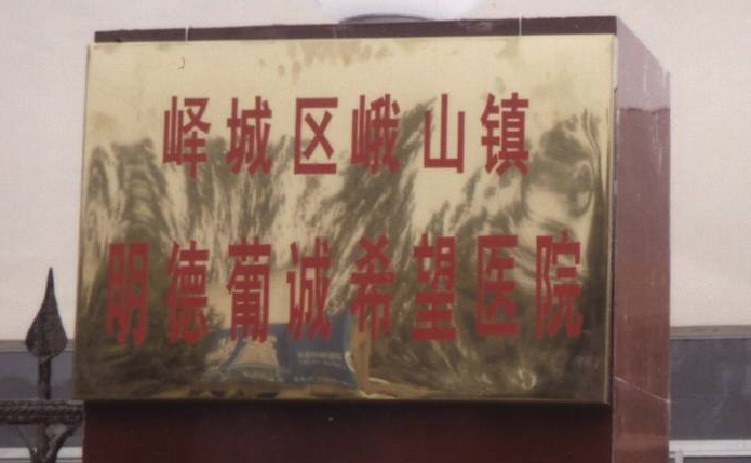 峄城区峨山镇
明德葡诚希望医院